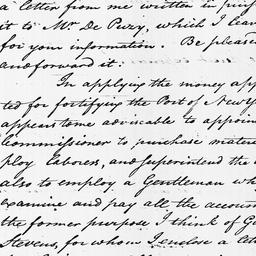 a letter from me written in purs
it to Mr De Puzy, which I leav
for your information. Be please
and forward it:
In applying the money app
ted for fortifying the Port of New Y
appears to me adviscable to appoin
Commissioner to purchase mater
ploy laborers, and superintend the
also to employ a Gentleman wh
examine and pay all the accoun
the former purpose I think of G
Stevens, for whom I enclose a lett